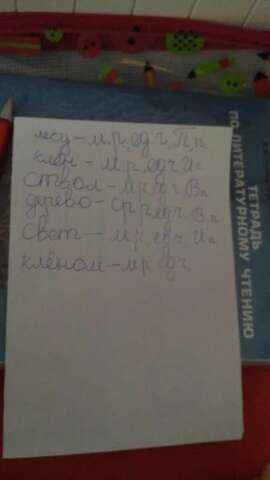 лесу - м.р, ед ч, П.п
клён - м р, ед ч И п
ствол - м р ед ч В п
дерево - ср р ед ч. В п
свет - м р, ед ч И п
клёном - м р ед ч,
ТЕТРАДЬ
ПО ЛИТЕРАТУРНОМУ ЧТЕНИЮ